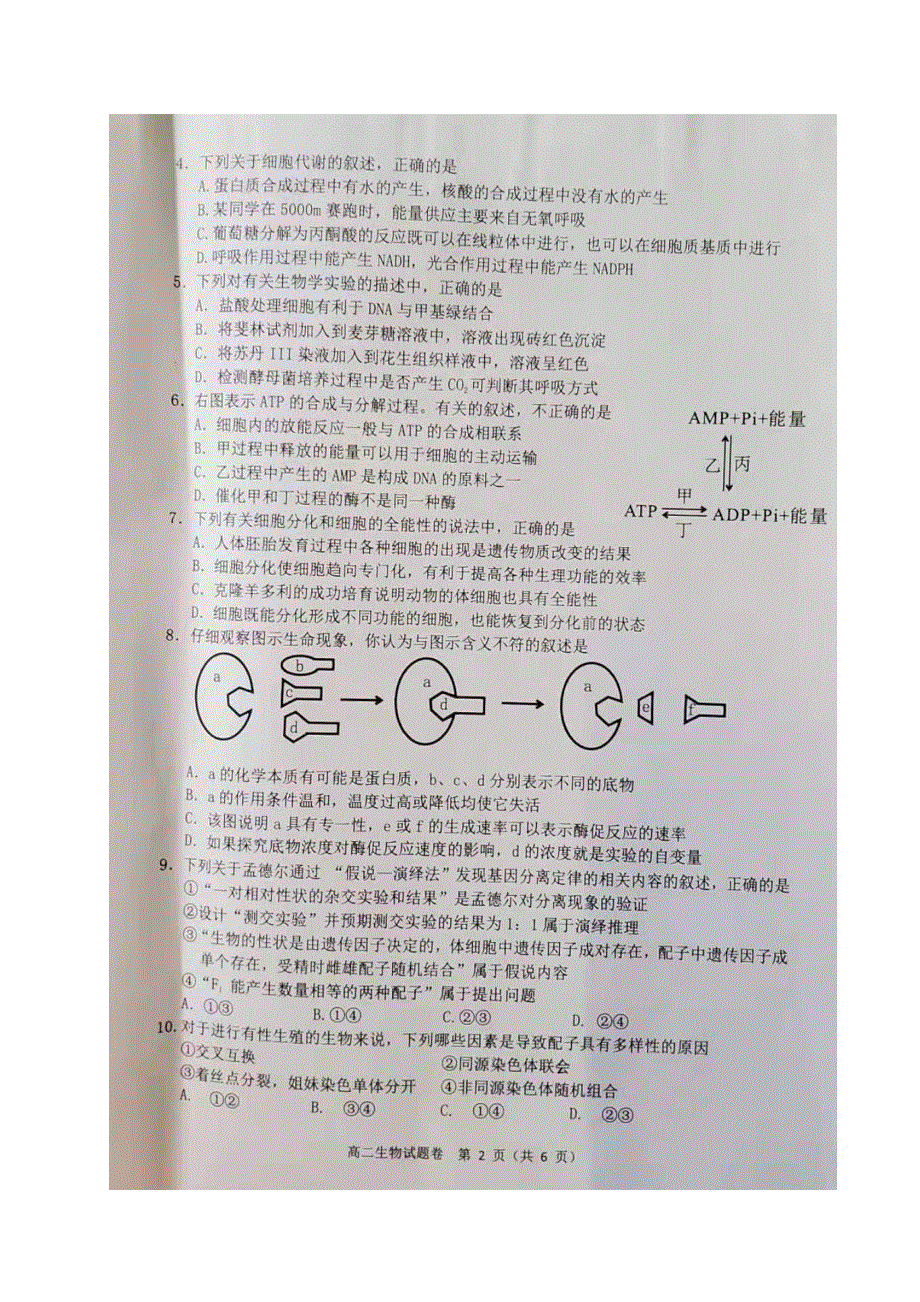 4. 下列关于细胞代谢的叙述，正确的是
A.蛋白质合成过程中有水的产生，核酸的合成过程中没有水的产生
B.某同学在5000m赛跑时，能量供应主要来自无氧呼吸
C.葡萄糖分解为丙酮酸的反应既可以在线粒体中进行，也可以在细胞质基质中进行
D.呼吸作用过程中能产生NADH，光合作用过程中能产生NADPH
5. 下列对有关生物学实验的描述中，正确的是
A. 盐酸处理细胞有利于DNA与甲基绿结合
B. 将斐林试剂加入到麦芽糖溶液中，溶液出现砖红色沉淀
C. 将苏丹III染液加入到花生组织样液中，溶液呈红色
D. 检测酵母菌培养过程中是否产生CO₂可判断其呼吸方式
6. 右图表示ATP的合成与分解过程。有关的叙述，不正确的是
A. 细胞内的放能反应一般与ATP的合成相联系
B. 甲过程中释放的能量可以用于细胞的主动运输
C. 乙过程中产生的AMP是构成DNA的原料之一
D. 催化甲和丁过程的酶不是同一种酶
AMP+Pi+能量
乙 丙
甲
ATP ADP+Pi+能量
丁
7. 下列有关细胞分化和细胞的全能性的说法中，正确的是
A. 人体胚胎发育过程中各种细胞的出现是遗传物质改变的结果
B. 细胞分化使细胞趋向专门化，有利于提高各种生理功能的效率
C. 克隆羊多利的成功培育说明动物的体细胞也具有全能性
D. 细胞既能分化形成不同功能的细胞，也能恢复到分化前的状态
8. 仔细观察图示生命现象，你认为与图示含义不符的叙述是
a b c d a d a e f
A. a的化学本质有可能是蛋白质，b、c、d分别表示不同的底物
B. a的作用条件温和，温度过高或降低均使它失活
C. 该图说明a具有专一性，e或f的生成速率可以表示酶促反应的速率
D. 如果探究底物浓度对酶促反应速度的影响，d的浓度就是实验的自变量
9. 下列关于孟德尔通过 “假说—演绎法”发现基因分离定律的相关内容的叙述，正确的是
①“一对相对性状的杂交实验和结果”是孟德尔对分离现象的验证
②设计“测交实验”并预期测交实验的结果为1：1属于演绎推理
③“生物的性状是由遗传因子决定的，体细胞中遗传因子成对存在，配子中遗传因子成
单个存在，受精时雌雄配子随机结合”属于假说内容
④“F₁ 能产生数量相等的两种配子”属于提出问题
A. ①③ B.①④ C.②③ D. ②④
10. 对于进行有性生殖的生物来说，下列哪些因素是导致配子具有多样性的原因
①交叉互换 ②同源染色体联会
③着丝点分裂，姐妹染色单体分开 ④非同源染色体随机组合
A. ①② B. ③④ C. ①④ D. ②③
高二生物试题卷 第 2 页（共 6 页）